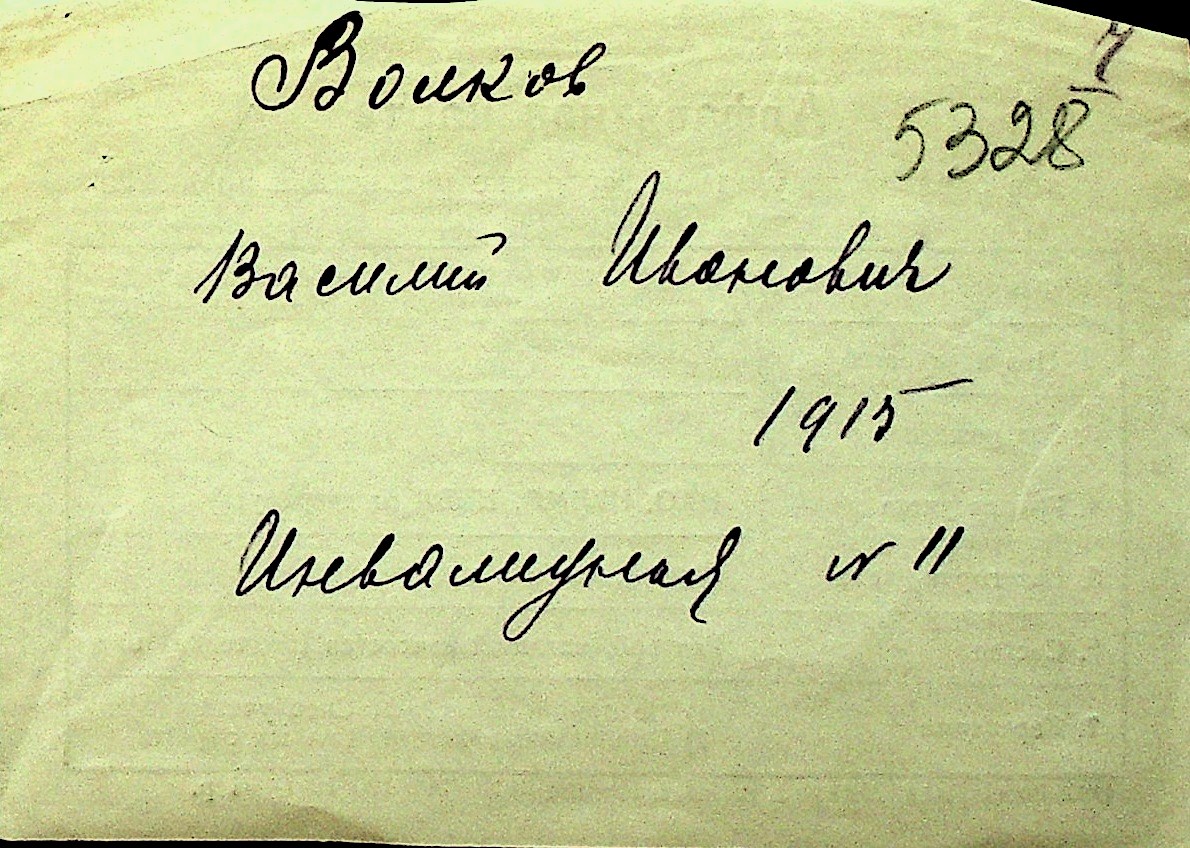 Волков
7
5328
Василий Иванович
1915
Инвалидная № 11